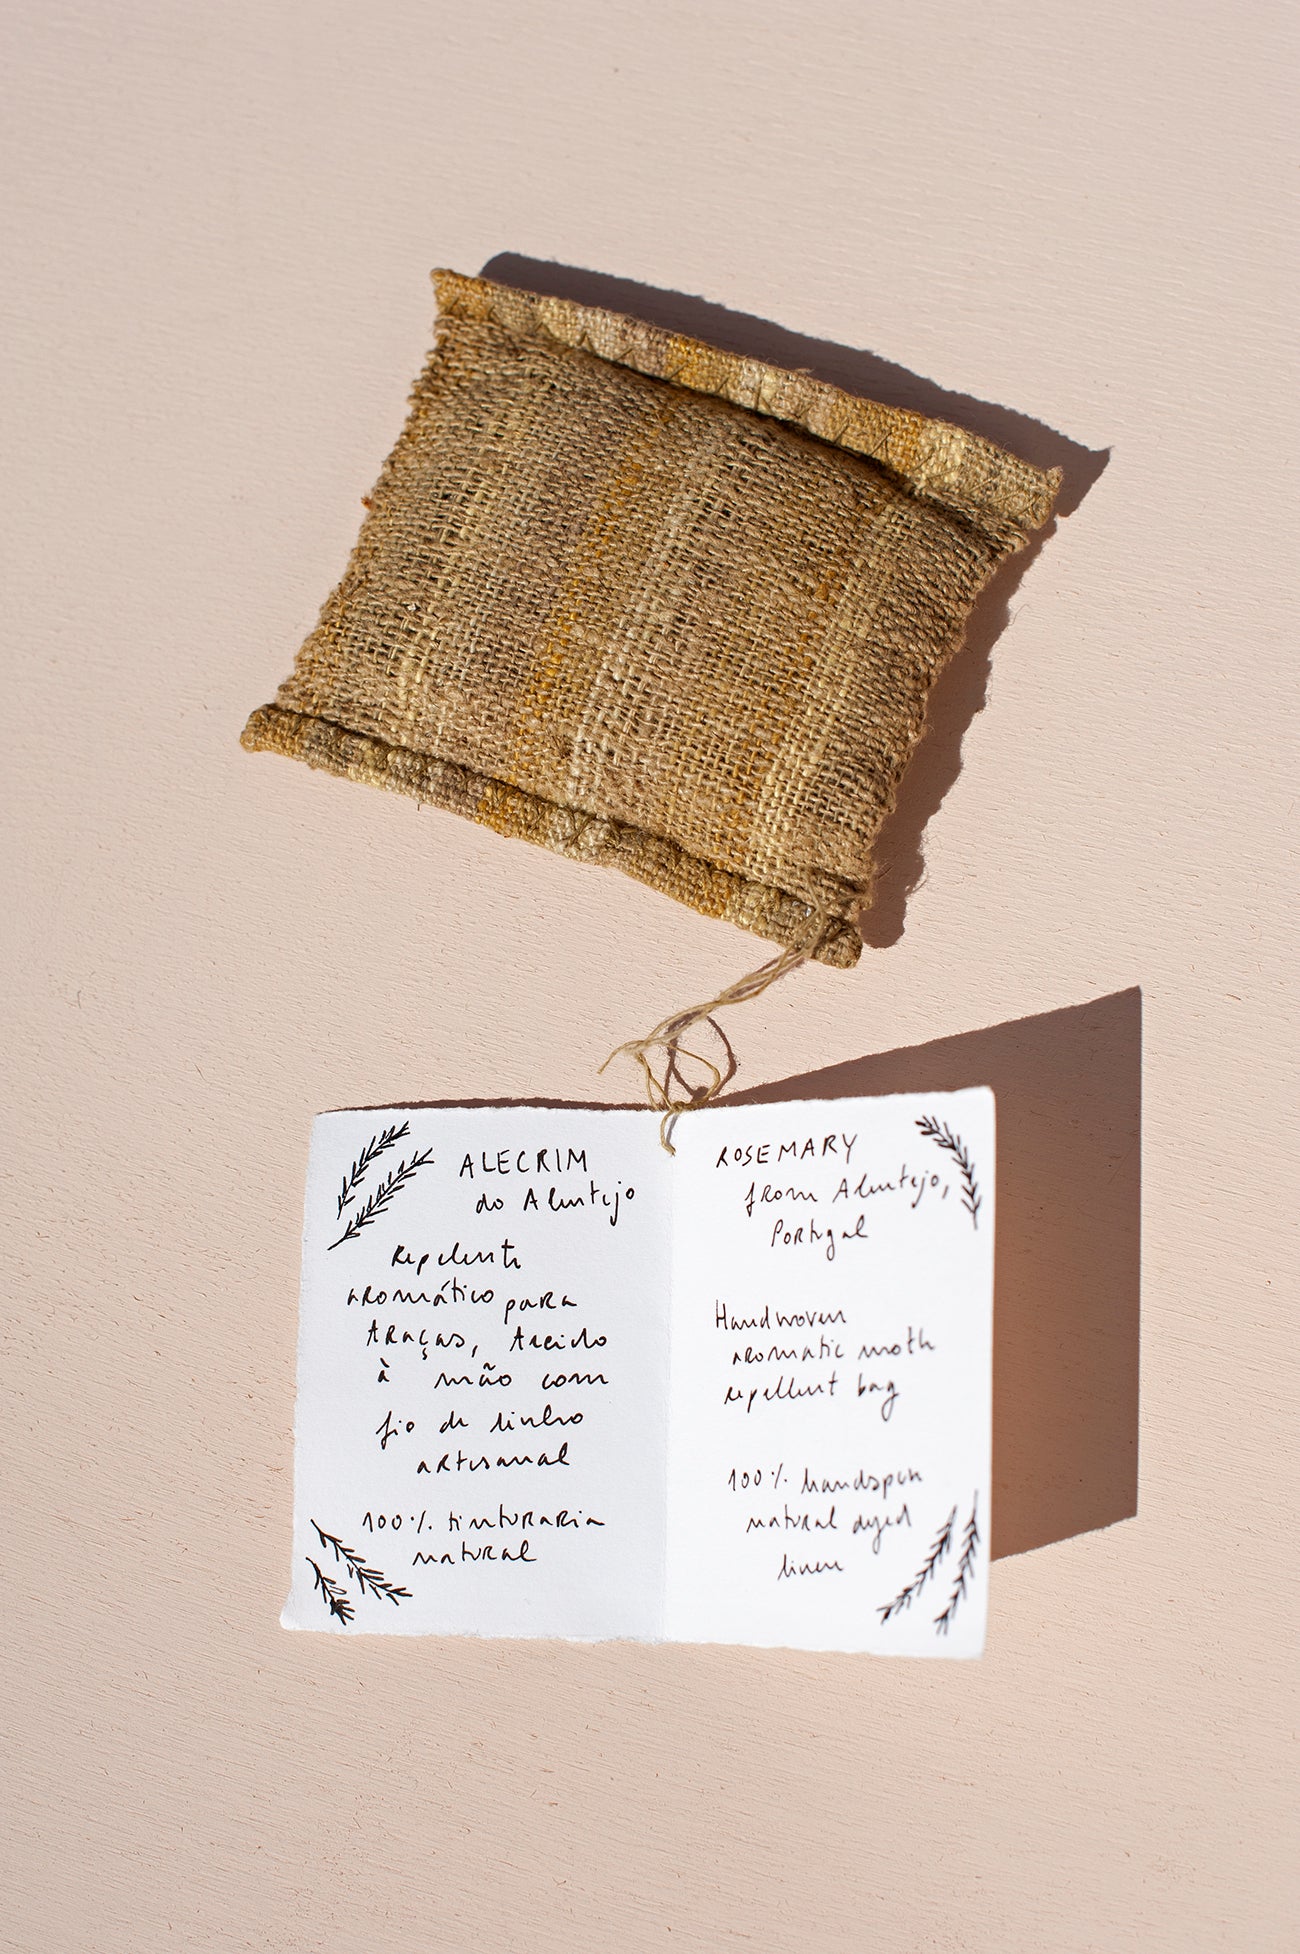 ALECRIM
do Alentejo
Repelente
aromático para
traças, tecido
à mão com
fio de linho
artesanal
100% tinturaria
natural
ROSEMARY
from Alentejo,
Portugal
Handwoven
aromatic moth
repellent bag
100% handspun
natural dyed
linen